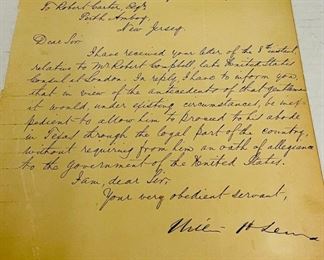 To Robert Carter, Esqr
Perth Amboy
New Jersey.
Dear Sir
I have received your letter of the 8th instant
relative to Mr Robert Campbell, late United States
Consul at London. In reply, I have to inform you,
that in view of the antecedents of that gentleman
it would, under existing circumstances, be inex-
pedient to allow him to proceed to his abode
in Texas through the loyal part of the country,
without requiring from him an oath of allegiance
to the government of the United States.
I am, dear Sir,
Your very obedient servant,
H Sew